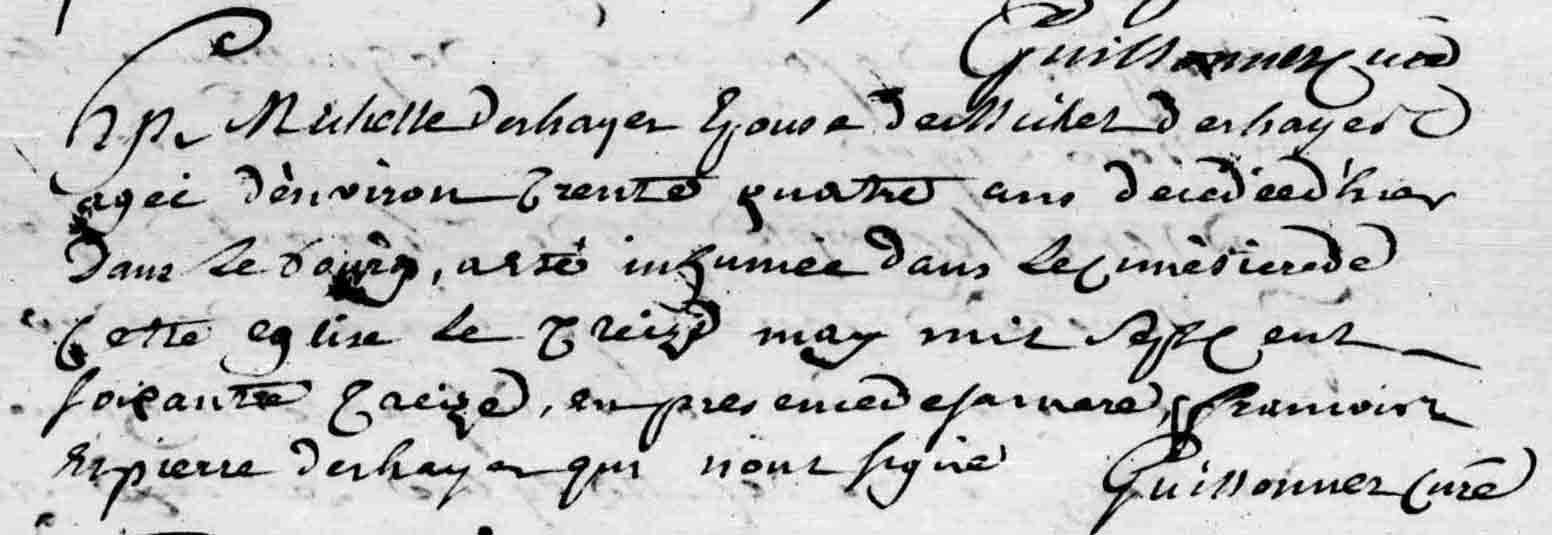 Guissonnez curé
Michelle deshayes Epouse de Michel deshayes
agée d'environ trente quatre ans decedée d'hier
dans le bourg, a eté inhumée dans le cimetiere de
Cette eglise le treize may mil sept cent
soixante treize, en presence de sa mere, francois
et pierre deshayes qui n'ont signé Guissonnez curé